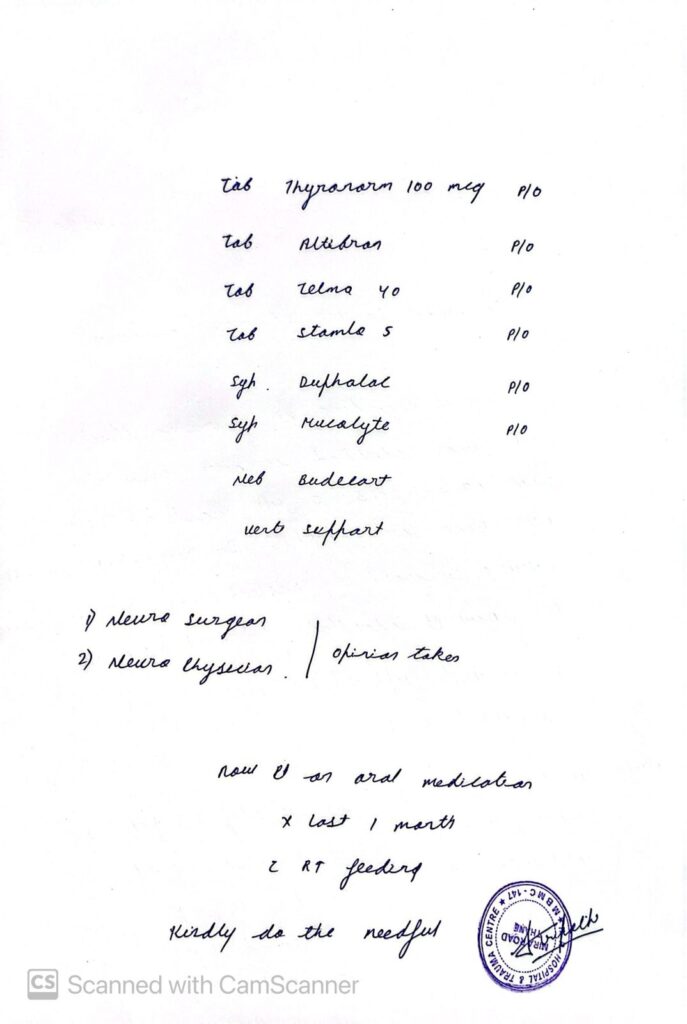 Tab Thyronorm 100 mcg P/O
Tab Altidran P/O
Tab Telma 40 P/O
Tab Stamlo 5 P/O
Syp. Duphalac P/O
Syp Mucolyte P/O
Neb Budecort
Vent support
1) Neuro surgeon
2) Neuro Physecian.
opinion taken
Now on oral medication
x last 1 month
c RT feeding
Kindly do the needful
HOSPITAL & TRAUMA CENTRE ★ M B M C - 147 ★
MIRA ROAD
THANE
CS Scanned with CamScanner